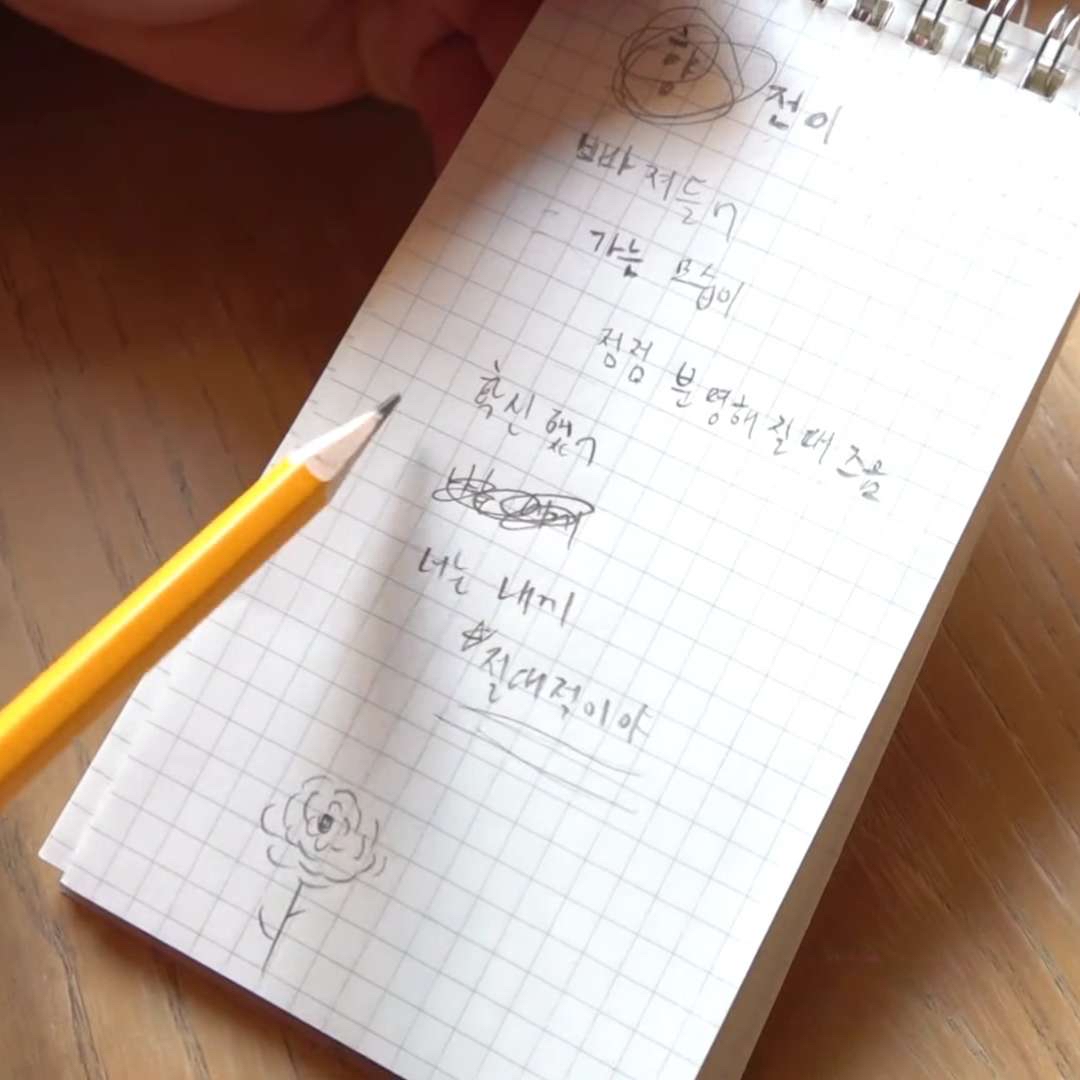 향
전이
빠져들ㄱ
가는 모습이
점점 분명해질 때 즈음
확신했ㄱ
너는 내게
절대적이야